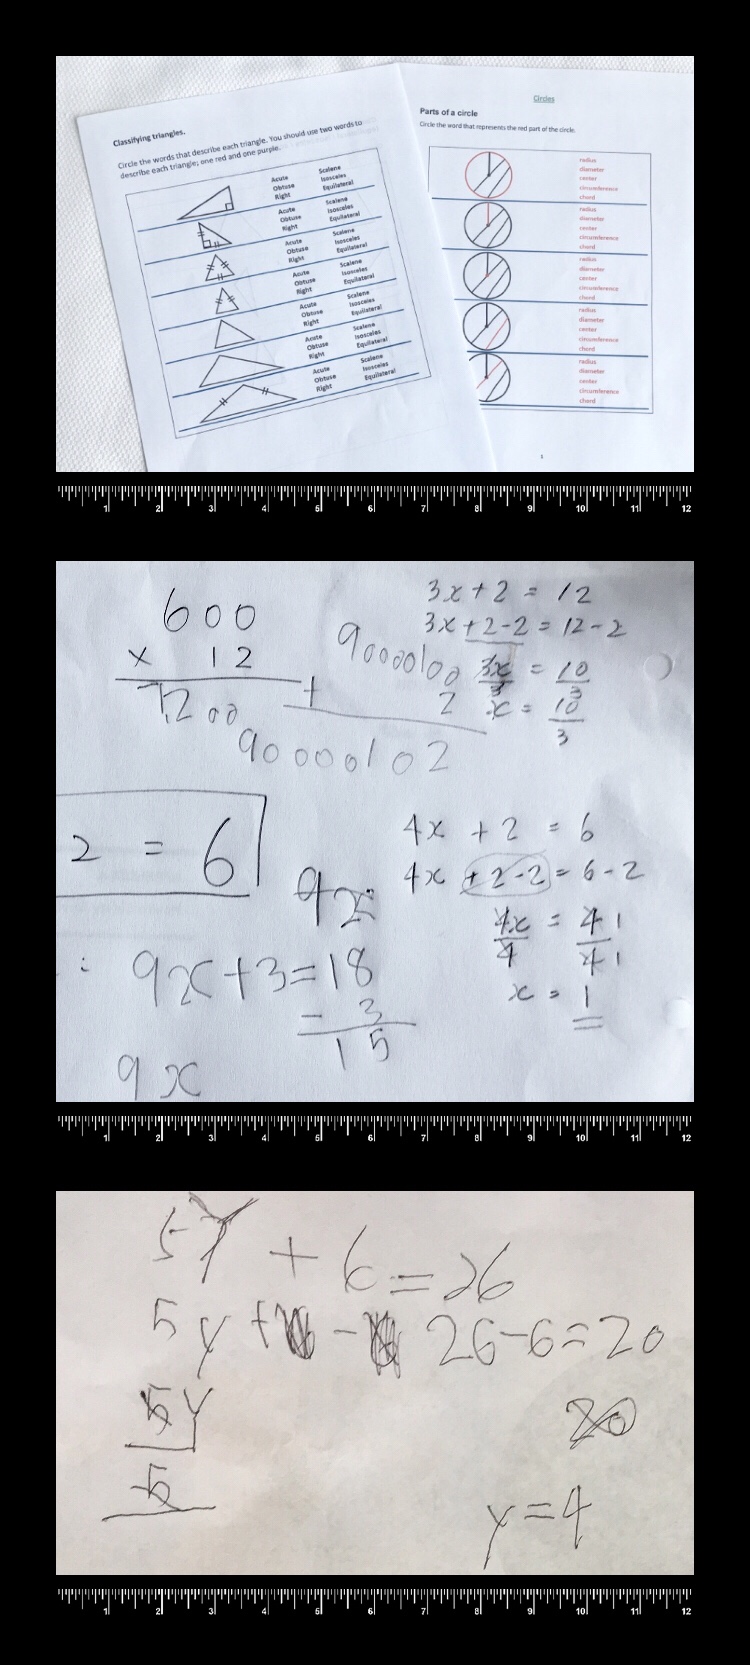 Classifying triangles.
Circle the words that describe each triangle. You should use two words to
describe each triangle; one red and one purple.
Acute Scalene
Obtuse Isosceles
Right Equilateral
Acute Scalene
Obtuse Isosceles
Right Equilateral
Acute Scalene
Obtuse Isosceles
Right Equilateral
Acute Scalene
Obtuse Isosceles
Right Equilateral
Acute Scalene
Obtuse Isosceles
Right Equilateral
Acute Scalene
Obtuse Isosceles
Right Equilateral
Acute Scalene
Obtuse Isosceles
Right Equilateral
Circles
Parts of a circle
Circle the word that represents the red part of the circle.
radius
diameter
center
circumference
chord
radius
diameter
center
circumference
chord
radius
diameter
center
circumference
chord
radius
diameter
center
circumference
chord
radius
diameter
center
circumference
chord
1
1 2 3 4 5 6 7 8 9 10 11 12
600
x 12
7200
90000100
+ 2
90000102
3x + 2 = 12
3x + 2 - 2 = 12 - 2
3x/3 = 10/3
x = 10/3
2 = 6
4x + 2 = 6
4x + 2 - 2 = 6 - 2
4x/4 = 4 1/4 1
x = 1
9x
9x + 3 = 18
- 3
15
9x
1 2 3 4 5 6 7 8 9 10 11 12
5y + 6 = 26
5y + - 26 - 6 = 20
5y
5
20
y = 4
1 2 3 4 5 6 7 8 9 10 11 12